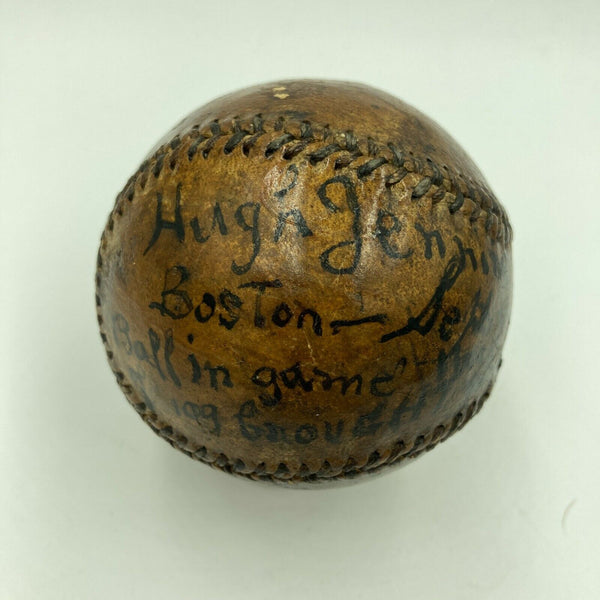 Hugh Jenni
Boston — Sep
Ball in game
109 Brought